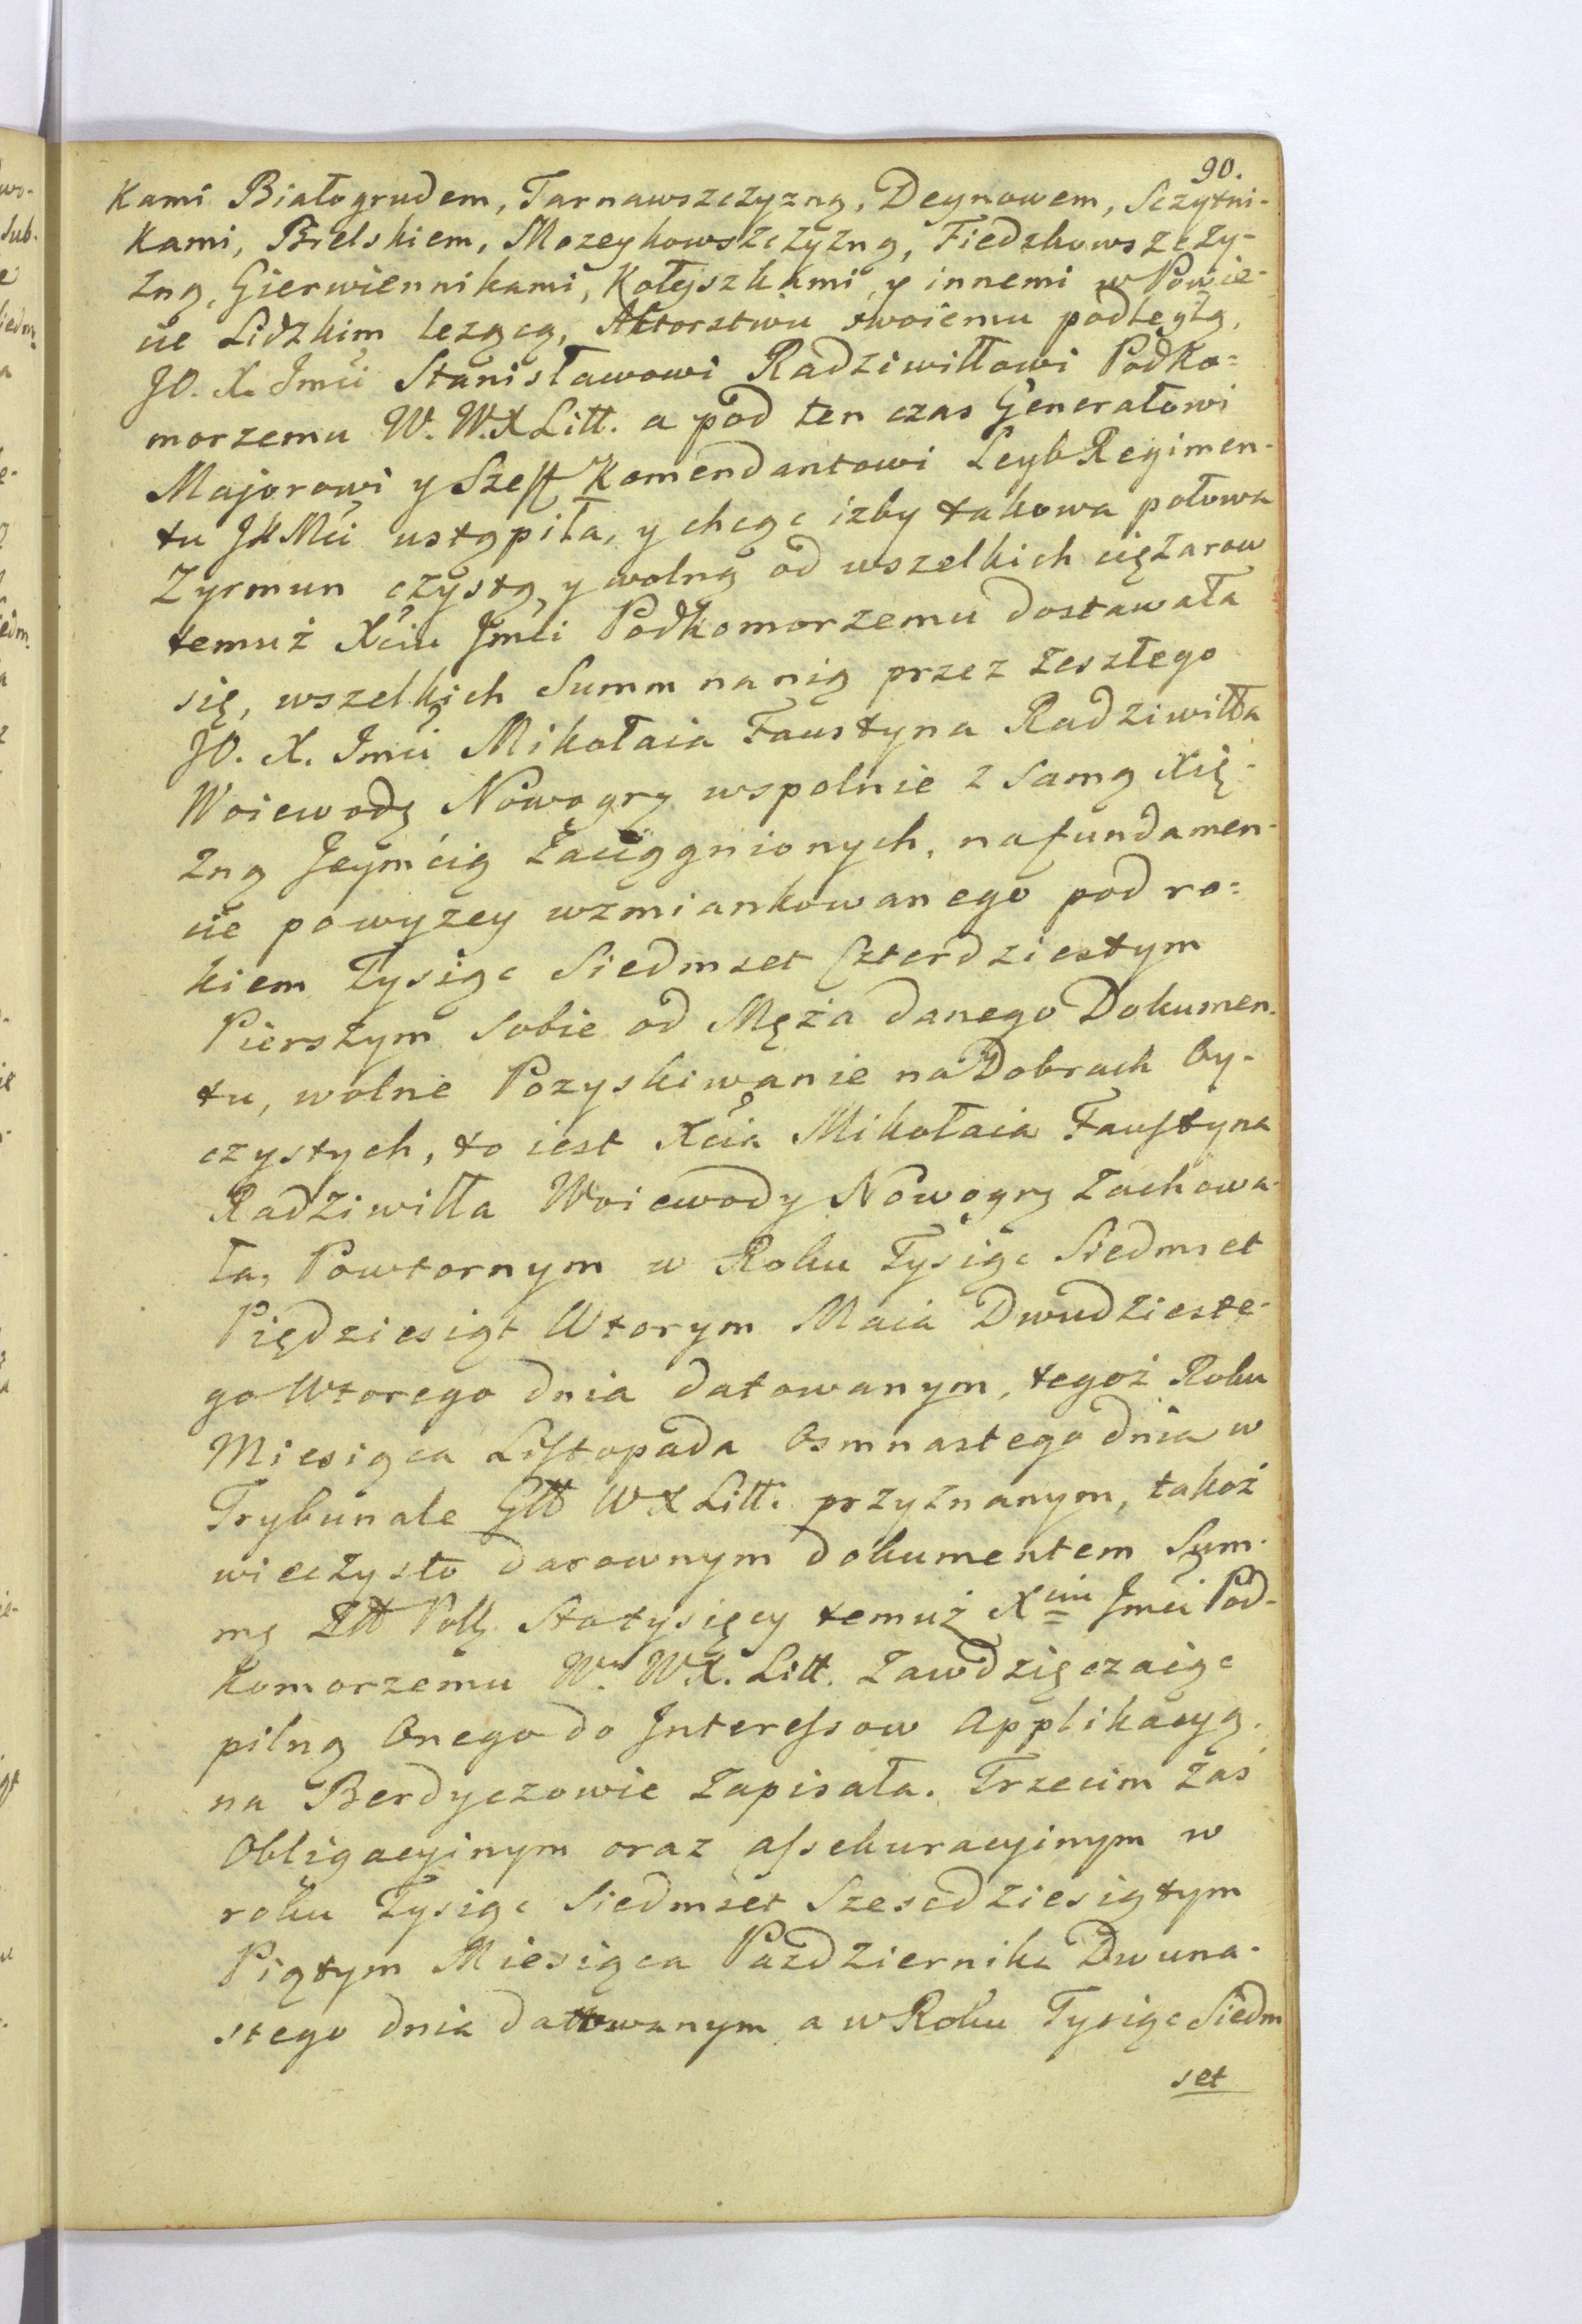 90.
Kami Białogrudem, Tarnawszczyzną, Deynowem, Sczytni-
Kami, Bielskiem, Mozeykowszczyzną, Fiedzkowszczy-
zną, Gierwiennikami, Kołejszkami, y innemi w Powie-
cie Lidzkim leząca, Aktorstwu swoiemu podległą,
JO. X. Imci Stanisławowi Radziwiłłowi Podko=
morzemu W. W.X Litt. a pod ten czas Generałowi
Majorowi y Szeff Komendantowi Leyb Regimen-
tu JKMci ustąpiła, y chcąc izby takowa połowa
Zyrmun czystą, y wolną od wszelkich ciężarow
temuż Xciu Jmci Podkomorzemu dostawała
się, wszelkich Summ na nią przez zeszłego
JO. X. Imci Mikołaia Faustyna Radziwiłła
Woiewodę Nowogrz wspolnie z samą Xię-
zną Jeymcią zaciągnionych, na fundamen-
cie powyzey wzmiankowanego pod ro=
kiem Tysiąc Siedmset Czterdziestym
Pierszym sobie od Męża danego Dokumen-
tu, wolne Pozyskiwanie na Dobrach Oy-
czystych, to iest Xcia Mikołaia Faustyna
Radziwiłła Woiewody Nowogrz zachowa-
ła, Powtornym w Roku Tysiąc Siedmset
Pięдziesiąt Wtorym Maia Dwudzieste-
go Wtorego dnia datowanym, tegoż Roku
Miesiąca Listopada Osmnastego dnia w
Trybunale Głł WX Litt. przyznanym, takoż
wieczysto darownym dokumentem Sum-
mę Złł Polł Stotysięcy temuż Xciu Jmci Pod-
komorzemu W. WX. Litt. zawdzięczaiąc
pilną Onego do Interessow Applikacyą.
na Berdyczowie zapisała. Trzecim zaś
Obligacyinym oraz assekuracyinym w
roku Tysiąc Siedmset Szescdziesiątym
Piątym Miesiąca Pazdziernika Dwuna-
stego dnia dattowanym a w Roku Tysiąc Siedm
set